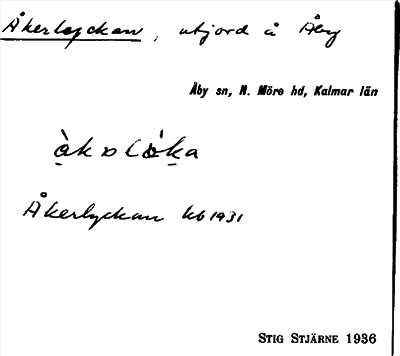 Åkerlyckan, utjord å Åby
Åby sn, N. Möre hd, Kalmar län
Åkerlyckan kb 1931
STIG STJÄRNE 1936